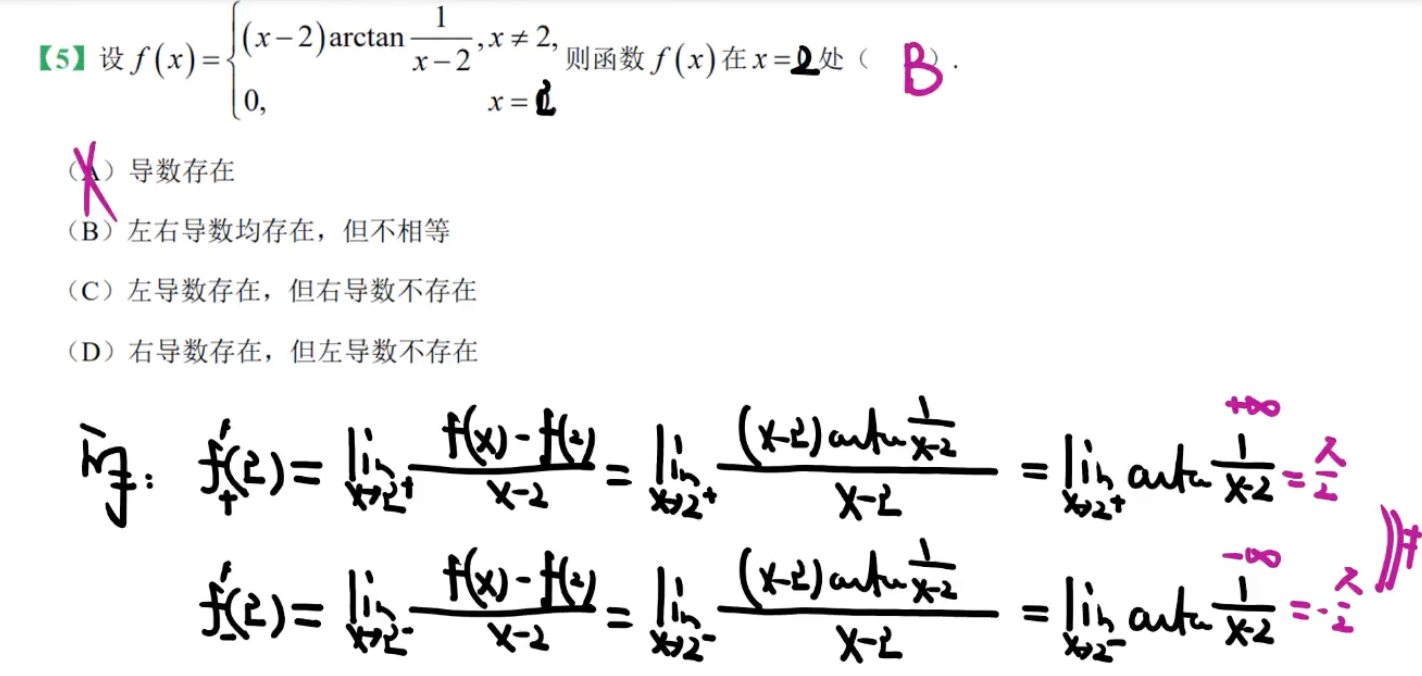 【5】设 f(x)={(x-2)arctan 1/(x-2), x≠2, 则函数 f(x) 在 x=2 处( B ).
0, x=2
(A)导数存在
(B)左右导数均存在,但不相等
(C)左导数存在,但右导数不存在
(D)右导数存在,但左导数不存在
f'₊(2)= lim x→2⁺ (f(x)-f(2))/(x-2) = lim x→2⁺ ((x-2)arctan 1/(x-2))/(x-2) = lim x→2⁺ arctan 1/(x-2) = π/2
+∞
f'₋(2)= lim x→2⁻ (f(x)-f(2))/(x-2) = lim x→2⁻ ((x-2)arctan 1/(x-2))/(x-2) = lim x→2⁻ arctan 1/(x-2) = -π/2
-∞
≠